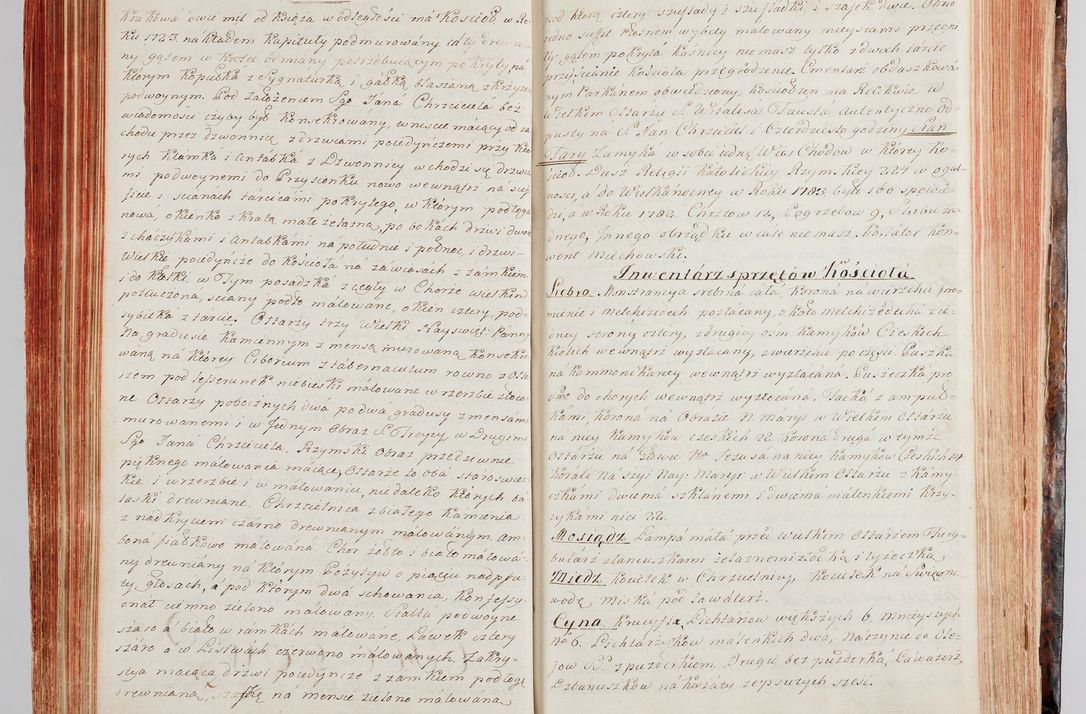 Krakowa ćwie mil od Xiąża w odległości má Kościoł w Ro-
ku 1727 nakładem Kapituły podmurowány cáły drewnia-
ny gątem w krotce odmiany potrzebuiącym pokryty, ná
którym Kopułka z Sygnaturką i gałką blaszaną z krzyżem
podwoynym. Pod założeniem Sgo Jana Chrzciciela bez
wiadomości czyby był konsekrowany, wniście maiący od za-
chodu przez dzwonnicę z drzwiami poiedynczemi przy któ-
rych klamka i antabka z Dzwonnicy wchodzi się drzwia-
mi podwoynemi do Przysionku nowo wewnątrz na suf-
ficie i scianach tarcicami pokrytego, w którym podłoga
nowa, okienko z kratą małe żelazną, po bokach drzwi dwoie
z haczykami i antabkami na południe i pułnoc i drzwi
Wielkie poiedyncze do Kościoła ná záwiasach z zámkiem
i do Kłotki, w Tym posadzka z cegły w Chorze wielkim
potłuczona, sciany podło malowane, okien cztery, pod-
sybitka z tarcic. Ołtarzy trzy Wielki Nayświęt: Panny
Na gradusie kamiennym z mensą murowaną konsekro-
waną na którey Ciborium z tabernaculum rowno z Ołta-
rzem pod lysserunek niebieski málowane w rzezbie złoco-
ne Ołtarzy pobocznych dwá po dwa gradusy z mensámi
murowanemi w Jednym Obraz S. Troycy, w Drugim
Sgo Janá Chrzciciela. Rzymski Obraz przedziwnie
pięknego málowania máiące, Ołtarze to obá stároswiec-
kie i w rzezbie i w málowaniu, niedaleko których ba-
laski drewniane. Chrzcielnica z białego kámienia
z nadkryciem czarno drewnianym málowánym am-
bona fiałkowo malowána. Chor żółto i biało málowá-
ny drewniany na którym Pozytyw o pięciu nad psu-
tych głosach, a pod którym dwa schowania Konfessy-
onał ciemno zielono malowany. Stallá podwoyne
száro á biało w rámkách malowane Láwek cztery
száro á w Listwách czerwono málowanych. Zakry-
stya maiąca drzwi poiedyncze z zamkiem podłogę
drewnianą, szafkę na mensie zielono malowaną
pod którą cztery szuflady i szufladki i szafek dwie. Okno
iedno suffit płotnem wybity malowany mieyscami przegni-
ły gątem pokrytá kośnicy niemasz tylko z dwoch tarcic
przyścianie Kościoła przegrodzenie. Cmentarz obdaszkowá-
nym Parkanem obwiedziony, Kościoł ten ma Relikwie w
Wielkim Ołtarzu S. Witalisa Fausta autentyczne od-
pusty na S. Jan Chrzciciel i Czterdziesto godziny. Stan
Fary zámyká w sobie iedną Wieś Chodow w którey Ko-
ścioł. Dusz Religii Katolickiey Rzymskiey 224 w ogul-
ności, á do Wielkanocney w Roku 1783 było 160 spowie-
dzi, a w Roku 1782 Chrztow 12, Pogrzebow 9, Slubu żá-
dnego, Innego obrządku wcale niemasz, Kollátor Kon-
went Miechowski.
Inwentárz sprzętów Kościoła
Srebro. Monstrancya srebrná cáłá, koroná na wierzchu pro-
mienie i melchizedech pozłacány, około melchizedecha z ie-
dney strony cztery, z drugiey ośm kámyków Czeskich
Kielich wewnątrz wyzłacany, zwierzchu po części. Puszka
na kommunikanty wewnątrz wyzłácána. Puszeczka pro
do chorych wewnątrz wyzłacana, Tácká z ampuł-
kámi, koroná ná Obrazie N. Maryi w Wielkim Ołtárzu
ná niey kámyków czeskich 22. Koroná druga w tymże
Ołtarzu ná głowie Pa Jezusa na niey kámyków Czeskich 14
Korale Ná szyi Nay: Maryi w Wielkim Ołtárzu z kámy-
czkámi dwiemá szklánemi i dwiema málenkiemi krzy-
żykami nici 22.
Mosiądz Lampa mátá przed Wielkim Ołtarzem Thury-
bularz z łancuszkámi żeláznemi z łodką i łyżeczką
Miedź Kociełek w Chrzcielnicy, Kociełek ná Swięconą
wodę Miská pod Lawaterz.
Cyna Krucyfix, Lichtárzow większych 6. mnieyszych
no 6. Lichtárzyków malenkich dwá, Naczynie do Ole-
jow SS. z puzderkiem, Drugie bez puzderka, Lawaterz,
Dzbánuszków ná kwiáty zepsutych sześć.